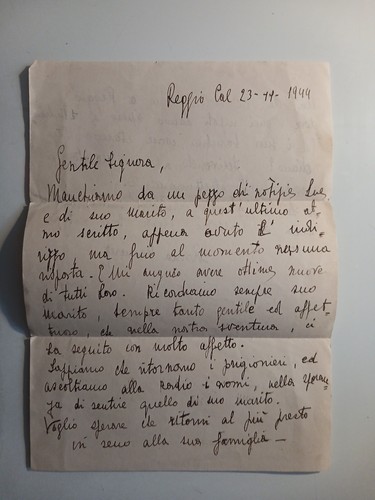 Reggio Cal 23-11-1944
Gentile Signora,
Manchiamo da un pezzo di notizie Sue
e di suo marito, a quest'ultimo ab-
mo scritto, appena avuto l' indi-
rizzo, ma fino al momento nessuna
risposta. E Mi auguro avere ottime nuove
di tutti loro. Ricordiamo sempre suo
marito, sempre tanto gentile ed affet-
tuoso, che nella nostra sventura, ci
ha seguito con molto affetto.
Sappiamo che ritornano i prigionieri, ed
ascoltiamo alla Radio i nomi, nella speran-
za di sentire quello di suo marito.
Voglio sperare che ritorni al più presto
in seno alla sua famiglia —